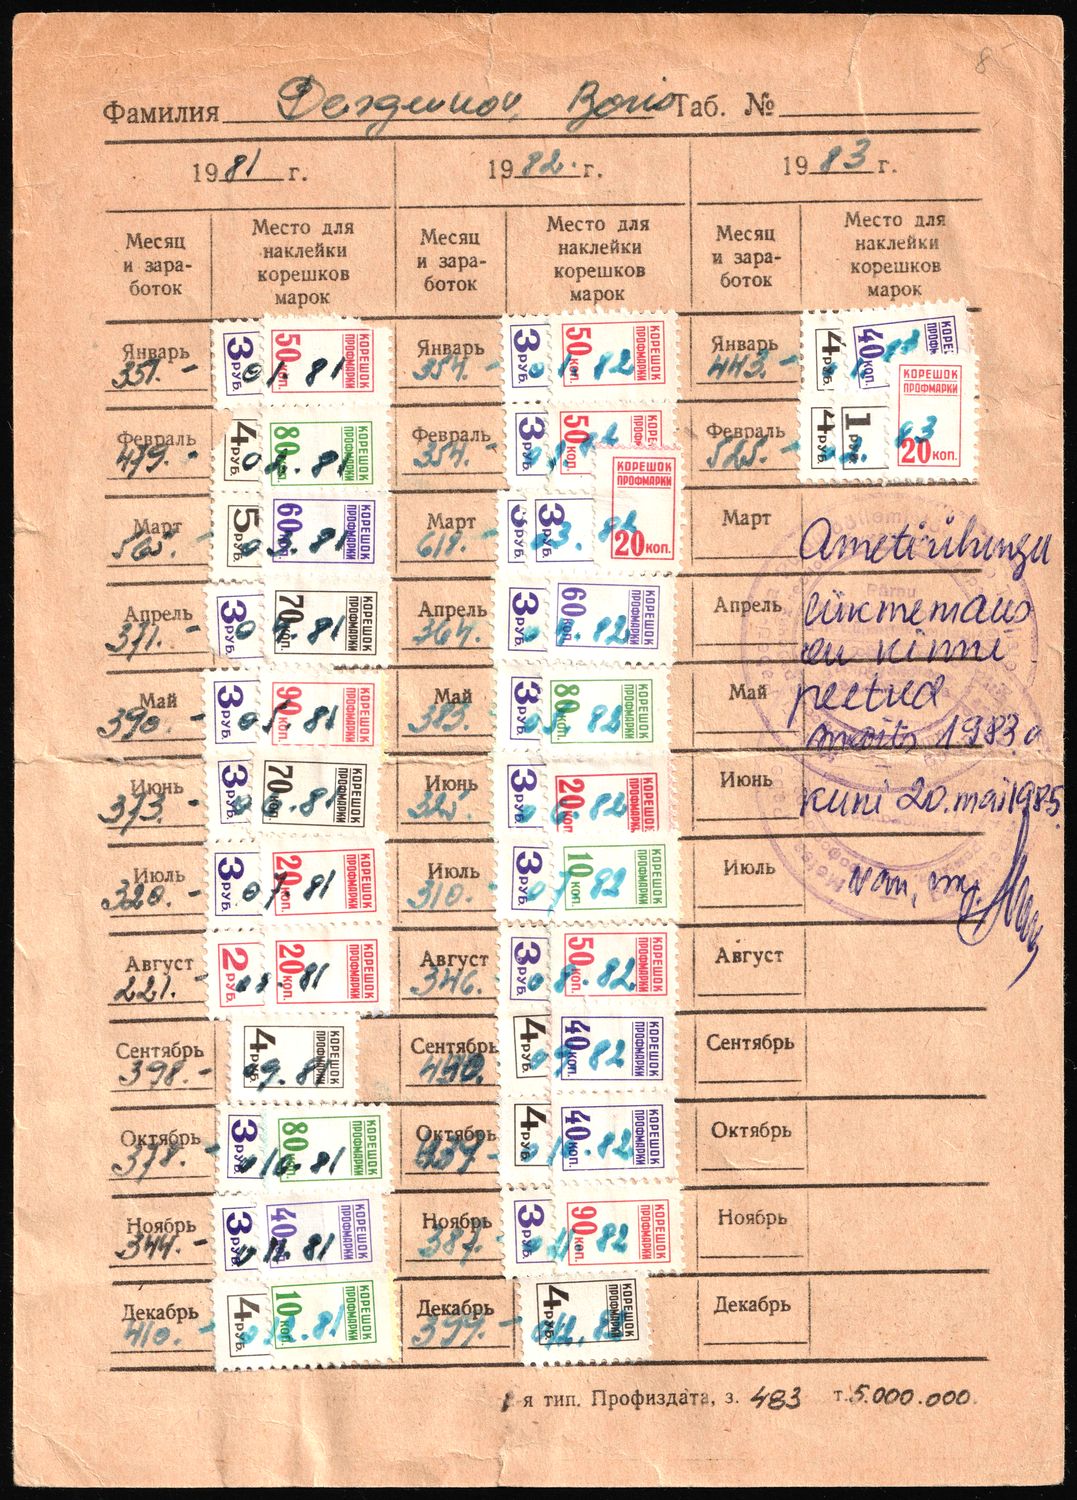 8-
Фамилия Boris Таб. №
1981 г. 1982. г. 1983 г.
Месяц и зара- боток Место для наклейки корешков марок Месяц и зара- боток Место для наклейки корешков марок Месяц и зара- боток Место для наклейки корешков марок
Январь 351.- 3 РУБ. 50 КОП. КОРЕШОК ПРОФМАРКИ 01.81 Январь 354.- 3 РУБ. 50 КОП. КОРЕШОК ПРОФМАРКИ 01.82 Январь 443.- 4 РУБ. 40 КОП. КОРЕШОК ПРОФМАРКИ
Февраль 479.- 4 РУБ. 80 КОП. КОРЕШОК ПРОФМАРКИ 02.81 Февраль 354.- 3 РУБ. 50 КОП. КОРЕШОК ПРОФМАРКИ Февраль 525.- 4 РУБ. 1 РУБ. 20 КОП. КОРЕШОК ПРОФМАРКИ
Март 565.- 5 РУБ. 60 КОП. КОРЕШОК ПРОФМАРКИ 03.81 Март 618.- 3 РУБ. 3 РУБ. 20 КОП. КОРЕШОК ПРОФМАРКИ 03.82 Март
Апрель 371.- 3 РУБ. 70 КОП. КОРЕШОК ПРОФМАРКИ 04.81 Апрель 364.- 3 РУБ. 60 КОП. КОРЕШОК ПРОФМАРКИ 04.82 Апрель
Май 390.- 3 РУБ. 90 КОП. КОРЕШОК ПРОФМАРКИ 05.81 Май 383.- 3 РУБ. 80 КОП. КОРЕШОК ПРОФМАРКИ 05.82 Май
Июнь 373.- 3 РУБ. 70 КОП. КОРЕШОК ПРОФМАРКИ 06.81 Июнь 325.- 3 РУБ. 20 КОП. КОРЕШОК ПРОФМАРКИ 06.82 Июнь
Июль 320.- 3 РУБ. 20 КОП. КОРЕШОК ПРОФМАРКИ 07.81 Июль 310.- 3 РУБ. 10 КОП. КОРЕШОК ПРОФМАРКИ 07.82 Июль
Август 221.- 2 РУБ. 20 КОП. КОРЕШОК ПРОФМАРКИ 08.81 Август 346.- 3 РУБ. 50 КОП. КОРЕШОК ПРОФМАРКИ 08.82 Август
Сентябрь 398.- 4 РУБ. КОРЕШОК ПРОФМАРКИ 09.81 Сентябрь 4 РУБ. 40 КОП. КОРЕШОК ПРОФМАРКИ 09.82 Сентябрь
Октябрь 378.- 3 РУБ. 80 КОП. КОРЕШОК ПРОФМАРКИ 010.81 Октябрь 4 РУБ. 40 КОП. КОРЕШОК ПРОФМАРКИ 010.82 Октябрь
Ноябрь 344.- 3 РУБ. 40 КОП. КОРЕШОК ПРОФМАРКИ 011.81 Ноябрь 387.- 3 РУБ. 90 КОП. КОРЕШОК ПРОФМАРКИ 011.82 Ноябрь
Декабрь 410.- 4 РУБ. 10 КОП. КОРЕШОК ПРОФМАРКИ Декабрь 399.- 4 РУБ. КОРЕШОК ПРОФМАРКИ 012.82 Декабрь
Ametiühingu
liikmemaks
on kinni
peetud
märts 1983 a
kuni 20. mai 1985.
Pärnu
1-я тип. Профиздата, з. 483 т. 5.000.000.